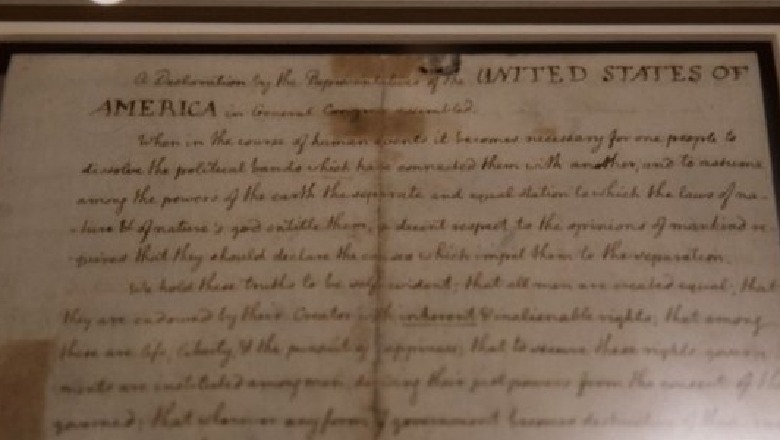 A Declaration by the Representatives of the UNITED STATES OF
AMERICA in General Congress assembled.
When in the course of human events it becomes necessary for one people to
dissolve the political bands which have connected them with another, and to assume
among the powers of the earth the separate and equal station to which the laws of na-
-ture & of nature's god entitle them, a decent respect to the opinions of mankind re-
-quires that they should declare the causes which impel them to the separation.
We hold these truths to be self evident: that all men are created equal; that
they are endowed by their Creator with inherent & inalienable rights; that among
these are life, liberty, & the pursuit of happiness; that to secure these rights, govern-
-ments are instituted among men, deriving their just powers from the consent of the
governed; that whenever any form of government becomes destructive of these